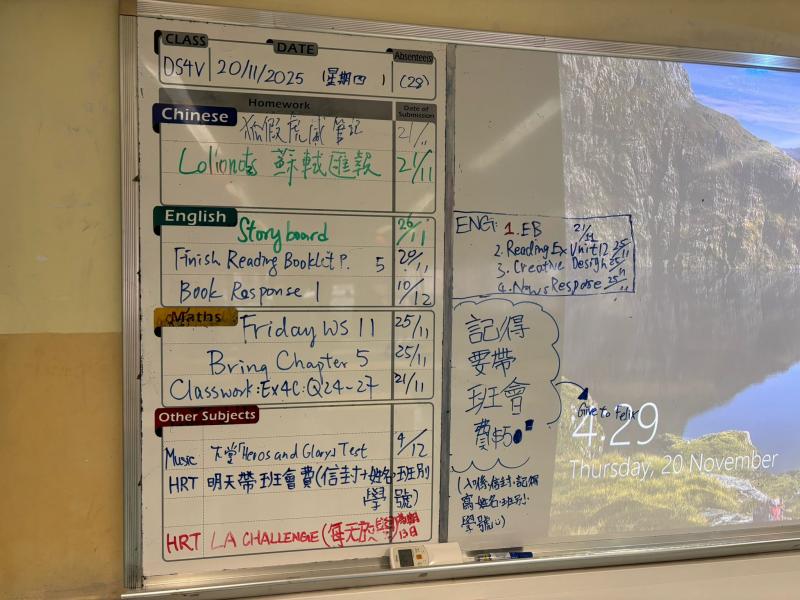 CLASS DATE Absentees
DS4V 20/11/2025 (星期四) (28)
Homework Date of Submission
Chinese 狐假虎威筆記 21/11
蘇軾匯報 21/11
English Storyboard 26/11
Finish Reading Booklet P. 5 20/11
Book Response 1 10/12
Maths Friday WS 11 25/11
Bring Chapter 5 25/11
Classwork: Ex4C: Q24-27 21/11
Other Subjects
Music 「Heros and Glory」Test 4/12
HRT 明天帶班會費(信封+姓名班別
學號)
HRT LA CHALLENGE (每天 13日
ENG: 1. EB 21/11
2. Reading Ex Unit 12 25/11
3. Creative Design 25/11
4. News Response 25/11
記得
要帶
班會
費$50
(入喺信封,記得
寫姓名、班別、
學號)
Give to Felix
4:29
Thursday, 20 November